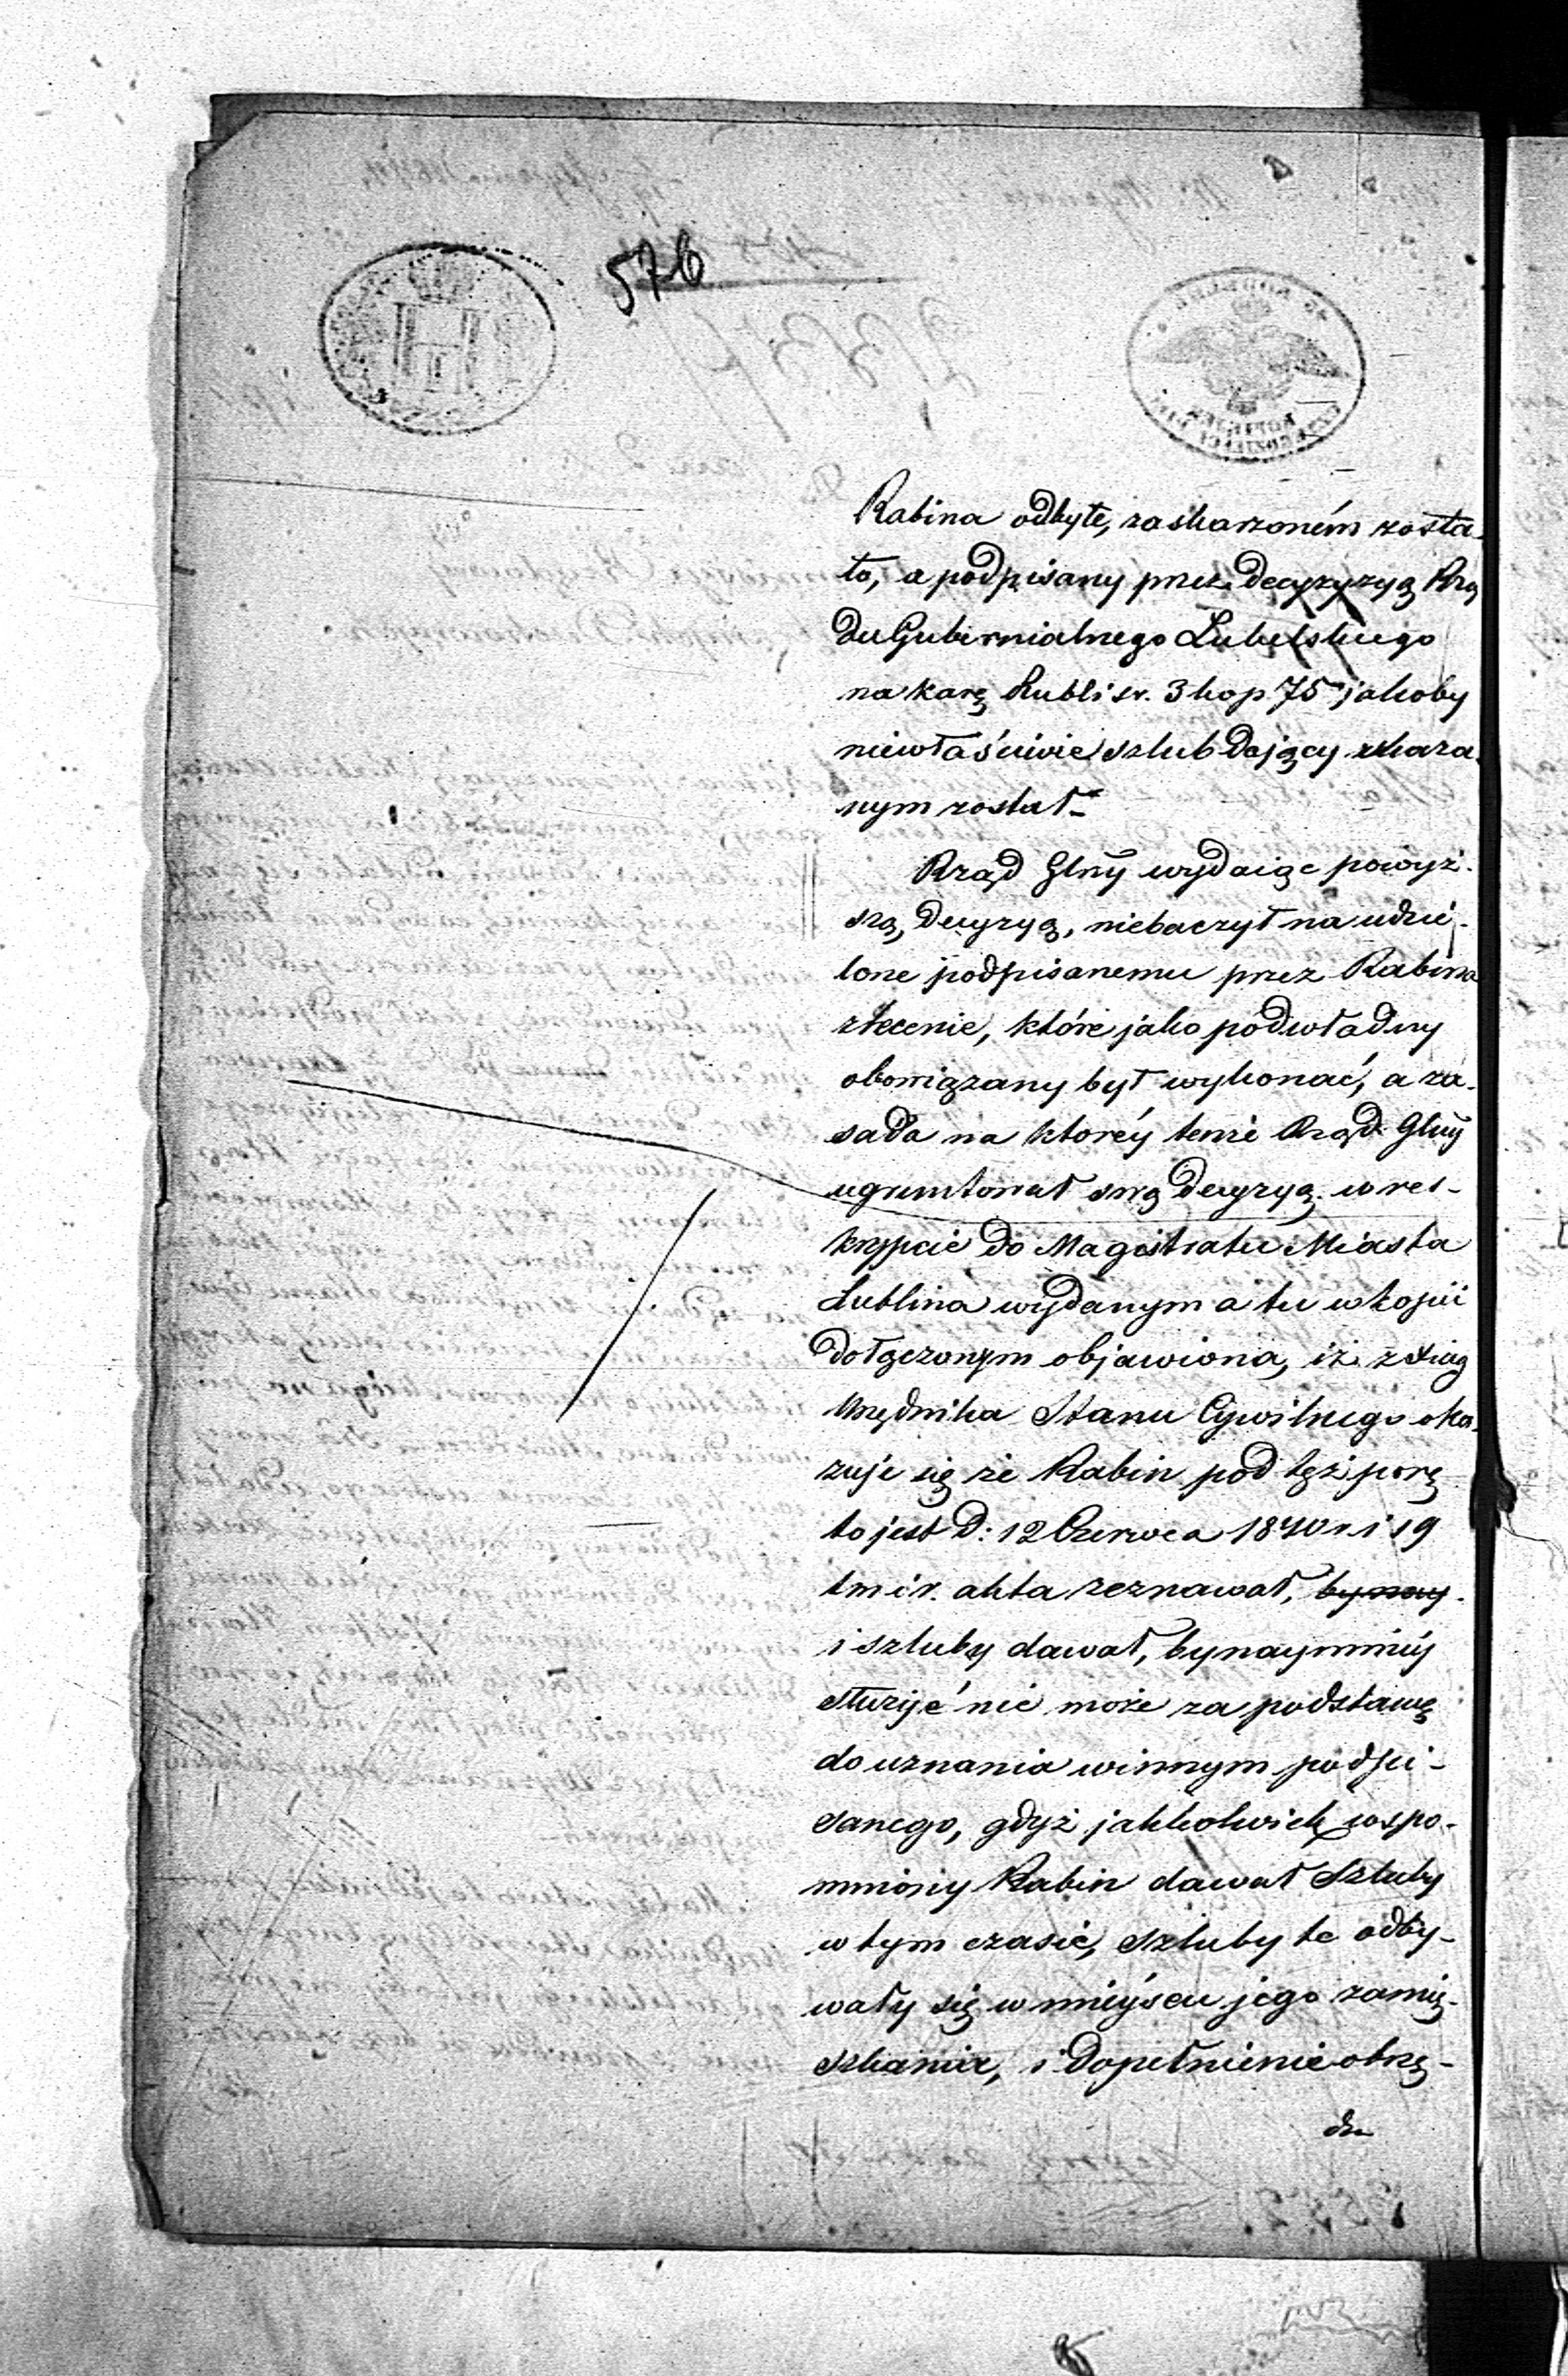 576
Rabina odbyte, zaskarzoném zosta-
ło, a podpisany przez decyzyzyą Rzą
du Gubernialnego Lubelskiego
na karę Rubli sr. 3 kop 75 jakoby
niewłaściwie szlub dający skaza-
nym został-
Rząd Glny wydaiąc powyż-
szą, decyzyą, niebaczył na udzie-
lone podpisanemu przez Rabina
zlecenie, które jako podwładny
obowiązany był wykonać, a za-
sada na któréy tenże Rząd Glny
ugruntował swą decyzyą w res-
krypcie do Magistratu Miasta
Lublina wydanym a tu w kopii
dołączonym objawiona, iż z xiąg
Urzędnika Stanu Cywilnego oka-
zuje się że Rabin pod tęż porę
to jest D: 12 Czerwca 1840 r. i 19
tm i r. akta zeznawał,
i szluby dawał, bynaymniéy
służyć nie może za podstawę
do uznania winnym podpi-
sanego, gdyż jakkolwiek wspo-
mniony Rabin dawał Szluby
w tym czasie, szluby te odby-
wały się w mieyscu jego zamię-
szkania, i dopełnienie obrzę-
du